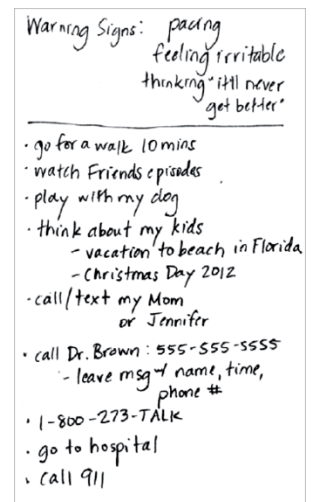 Warning Signs: pacing
feeling irritable
thinking "it'll never
get better"
• go for a walk 10 mins
• watch Friends episodes
• play with my dog
• think about my kids
- vacation to beach in Florida
- Christmas Day 2012
• call/text my Mom
or Jennifer
• call Dr. Brown: 555-555-5555
- leave msg w/ name, time,
phone #
• 1-800-273-TALK
• go to hospital
• call 911